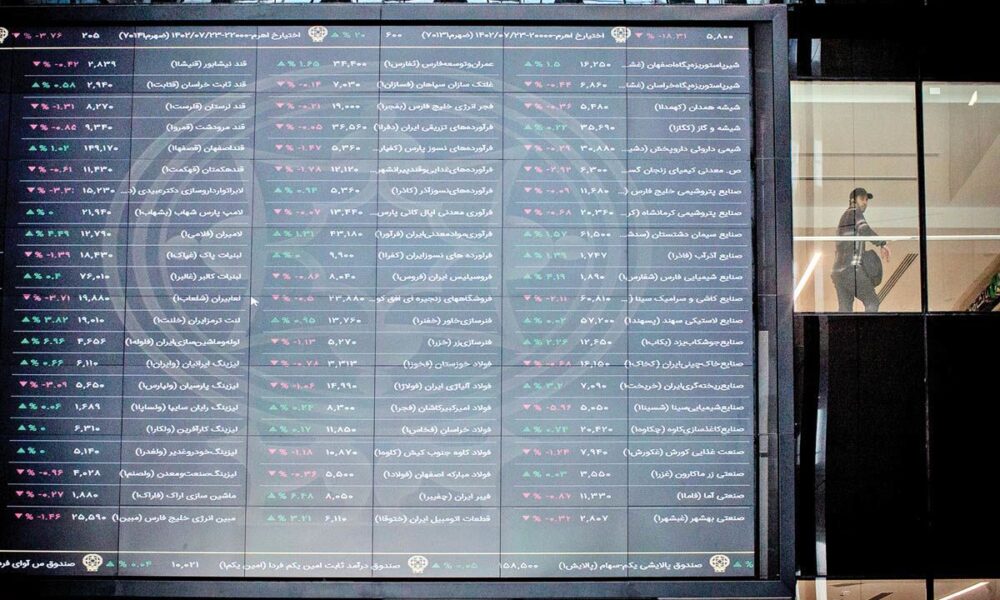 ۵,۸۰۰ -۱۸.۳۱ % ▼
اختیارخ اهرم-۲۰۰۰۰-۱۴۰۲/۰۷/۲۳ (ضهرم۷۰۱۳۱) ۶۰۰ ۲۰ % ▲
اختیارخ اهرم-۲۲۰۰۰-۱۴۰۲/۰۷/۲۳ (ضهرم۷۰۱۴۱) ۲۰۵ -۳.۷۶ % ▼
شیرپاستوریزه‌پگاه‌اصفهان (غش... ۱۶,۲۵۰ ۱.۵ % ▲
شیرپاستوریزه‌پگاه‌خراسان (غشا... ۶,۸۶۰ -۰.۴۴ % ▼
شیشه همدان (کهمدا۱) ۵,۴۸۰ -۰.۳۶ % ▼
شیشه و گاز (کگاز۱) ۳۵,۶۹۰ ۰.۲۲ % ▲
شیمی داروئی داروپخش (دشی... ۳۰,۸۸۰ -۰.۲۹ % ▼
ص. معدنی کیمیای زنجان گس... ۶,۳۰۰ -۲.۹۲ % ▼
صنایع پتروشیمی خلیج فارس (... ۱۱,۶۸۰ -۰.۰۹ % ▼
صنایع پتروشیمی کرمانشاه (کر... ۲۰,۳۶۰ -۰.۶۸ % ▼
صنایع سیمان دشتستان (سدش... ۶۱,۵۰۰ ۱.۵۷ % ▲
صنایع آذرآب (فاذر۱) ۱,۷۴۷ ۱.۳۹ % ▲
صنایع شیمیایی فارس (شفارس۱) ۱,۸۹۰ ۴.۱۹ % ▲
صنایع کاشی و سرامیک سینا (... ۶۰,۸۱۰ -۲.۱۱ % ▼
صنایع لاستیکی سهند (پسهند۱) ۵۷,۲۰۰ ۰.۰۲ % ▲
صنایع‌جوشکاب‌یزد (بکاب۱) ۱۲,۶۵۰ ۲.۲۶ % ▲
صنایع‌خاک‌چینی‌ایران (کخاک۱) ۱۶,۱۵۰ -۰.۶۸ % ▼
صنایع‌ریخته‌گری‌ایران (خریخت۱) ۷,۰۹۰ ۳.۲ % ▲
صنایع‌شیمیایی‌سینا (شسینا۱) ۵,۰۵۰ -۵.۹۶ % ▼
صنایع‌کاغذسازی‌کاوه (چکاوه۱) ۲۰,۴۲۰ ۰.۷۴ % ▲
صنعت غذایی کورش (غکورش۱) ۷,۹۴۰ -۱.۲۴ % ▼
صنعتی زر ماکارون (غزر۱) ۳,۵۵۰ ۰.۰۳ % ▲
صنعتی آما (فاما۱) ۱۱,۳۳۰ -۰.۸۷ % ▼
صنعتی بهشهر (غبشهر۱) ۲,۸۰۷ -۰.۳۲ % ▼
عمران‌وتوسعه‌فارس (ثفارس۱) ۳۴,۴۰۰ ۱.۶۵ % ▲
غلتک سازان سپاهان (فسازان۱) ۷,۰۳۰ -۰.۱۴ % ▼
فجر انرژی خلیج فارس (بفجر۱) ۱۹,۰۰۰ -۰.۲۱ % ▼
فرآورده‌های تزریقی ایران (دفرا۱) ۳۶,۵۶۰ -۰.۰۵ % ▼
فرآورده‌های نسوز پارس (کفپار... ۵,۳۶۰ -۱.۴۷ % ▼
فرآورده‌های‌غذایی‌وقندپیرانشهر... ۱۲,۱۲۰ -۱.۷۸ % ▼
فرآورده‌های‌نسوزآذر (کاذر۱) ۵,۳۶۰ ۰.۹۴ % ▲
فرآوری معدنی اپال کانی پارس... ۱۳,۴۴۰ -۰.۰۷ % ▼
فرآوری‌موادمعدنی‌ایران (فرآور۱) ۴۳,۱۸۰ ۱.۳۱ % ▲
فرآورده های نسوزایران (کفرا۱) ۹,۹۰۰ ۰ % ▲
فروسیلیس ایران (فروس۱) ۸,۰۴۰ -۰.۸۶ % ▼
فروشگاههای زنجیره ای افق کو... ۲۳,۸۸۰ -۰.۵ % ▼
فنرسازی‌خاور (خفنر۱) ۱۳,۷۶۰ ۰.۹۵ % ▲
فنرسازی‌زر (خزر۱) ۵,۲۷۰ -۱.۱۳ % ▼
فولاد خوزستان (فخوز۱) ۳,۳۱۳ -۰.۷۸ % ▼
فولاد آلیاژی ایران (فولاژ۱) ۱۴,۹۹۰ -۱.۰۶ % ▼
فولاد امیرکبیرکاشان (فجر۱) ۸,۳۰۰ ۰.۲۴ % ▲
فولاد خراسان (فخاس۱) ۱۱,۸۵۰ ۰.۱۷ % ▲
فولاد کاوه جنوب کیش (کاوه۱) ۱۰,۸۷۰ -۱.۱۸ % ▼
فولاد مبارکه اصفهان (فولاد۱) ۵,۵۰۰ -۰.۳۶ % ▼
فیبر ایران (چفیبر۱) ۸,۰۵۰ ۶.۴۸ % ▲
قطعات اتومبیل ایران (ختوقا۱) ۶,۱۱۰ ۳.۲۱ % ▲
قند نیشابور (قنیشا۱) ۲,۸۳۹ -۰.۴۲ % ▼
قند ثابت خراسان (قثابت۱) ۲,۹۴۰ ۰.۵۸ % ▲
قند لرستان (قلرست۱) ۸,۲۷۰ -۱.۳۱ % ▼
قند مرودشت (قمرو۱) ۹,۳۴۰ -۰.۸۵ % ▼
قنداصفهان (قصفها۱) ۱۴۹,۱۷۰ ۱.۰۲ % ▲
قندهکمتان (قهکمت۱) ۱۱,۴۳۰ -۰.۶۱ % ▼
لابراتوارداروسازی دکترعبیدی (د... ۱۵,۲۳۰ -۳.۳ % ▼
لامپ پارس شهاب (بشهاب۱) ۲۱,۹۴۰ ۰ % ▲
لامیران (فلامی۱) ۱۲,۷۹۰ ۴.۴۹ % ▲
لبنیات پاک (غپاک۱) ۱۸,۴۳۰ -۱.۳۹ % ▼
لبنیات کالبر (غالبر۱) ۷۶,۰۱۰ ۰.۴ % ▲
لعابیران (شلعاب۱) ۱۹,۸۸۰ -۳.۷۱ % ▼
لنت ترمزایران (خلنت۱) ۱۹,۰۱۰ ۳.۸۲ % ▲
لوله‌وماشین‌سازی‌ایران (فلوله۱) ۴,۶۵۶ ۶.۹۶ % ▲
لیزینگ ایرانیان (وایران۱) ۶,۱۱۰ ۰.۶۶ % ▲
لیزینگ پارسیان (ولپارس۱) ۵,۶۵۰ -۳.۰۹ % ▼
لیزینگ رایان سایپا (ولساپا۱) ۱,۶۸۹ ۰.۰۶ % ▲
لیزینگ کارآفرین (ولکار۱) ۶,۳۱۰ ۰ % ▲
لیزینگ‌خودروغدیر (ولغدر۱) ۵,۱۴۰ ۰ % ▲
لیزینگ‌صنعت‌ومعدن (ولصنم۱) ۴,۰۲۸ -۰.۹۶ % ▼
ماشین سازی اراک (فاراک۱) ۱,۸۸۰ -۰.۲۷ % ▼
مبین انرژی خلیج فارس (مبین۱) ۲۵,۵۹۰ -۱.۴۶ % ▼
% ▲
صندوق پالایشی یکم-سهام (پالایش۱) ۱۵۸,۵۰۰ ۰.۰۵ % ▲
صندوق درآمد ثابت امین یکم فردا (امین یکم۱) ۱۰,۰۲۱ ۰.۰۴ % ▲
صندوق س آوای فرد